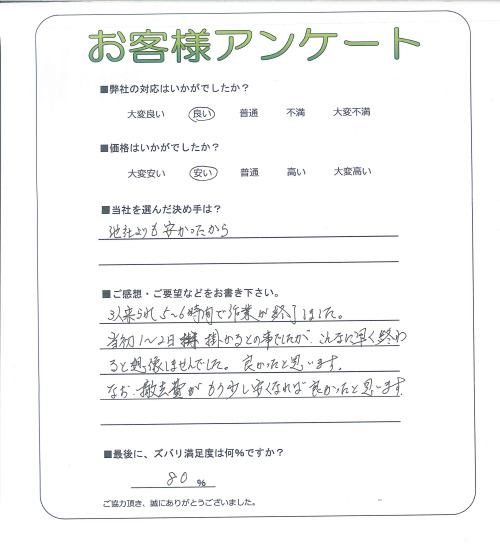 お客様アンケート
■弊社の対応はいかがでしたか?
大変良い 良い 普通 不満 大変不満
■価格はいかがでしたか?
大変安い 安い 普通 高い 大変高い
■当社を選んだ決め手は?
他社よりも安かったから
■ご感想・ご要望などをお書き下さい。
来られ5~6時間で作業が終了しました。
当初1~2日 掛かるとの事でしたが、こんなに早く終わ
ると想像しませんでした。良かったと思います。
なお、撤去費がもう少し安くなれば良かったと思います。
■最後に、ズバリ満足度は何%ですか?
80 %
ご協力頂き、誠にありがとうございました。